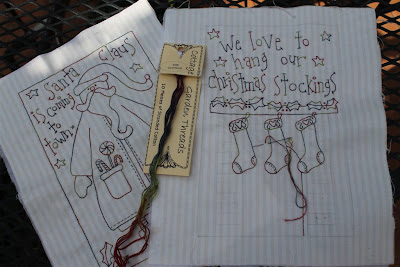 Santa Claus
is coming
to
town
Cottage
Garden Threads
we love to
hang our
christmas stockings